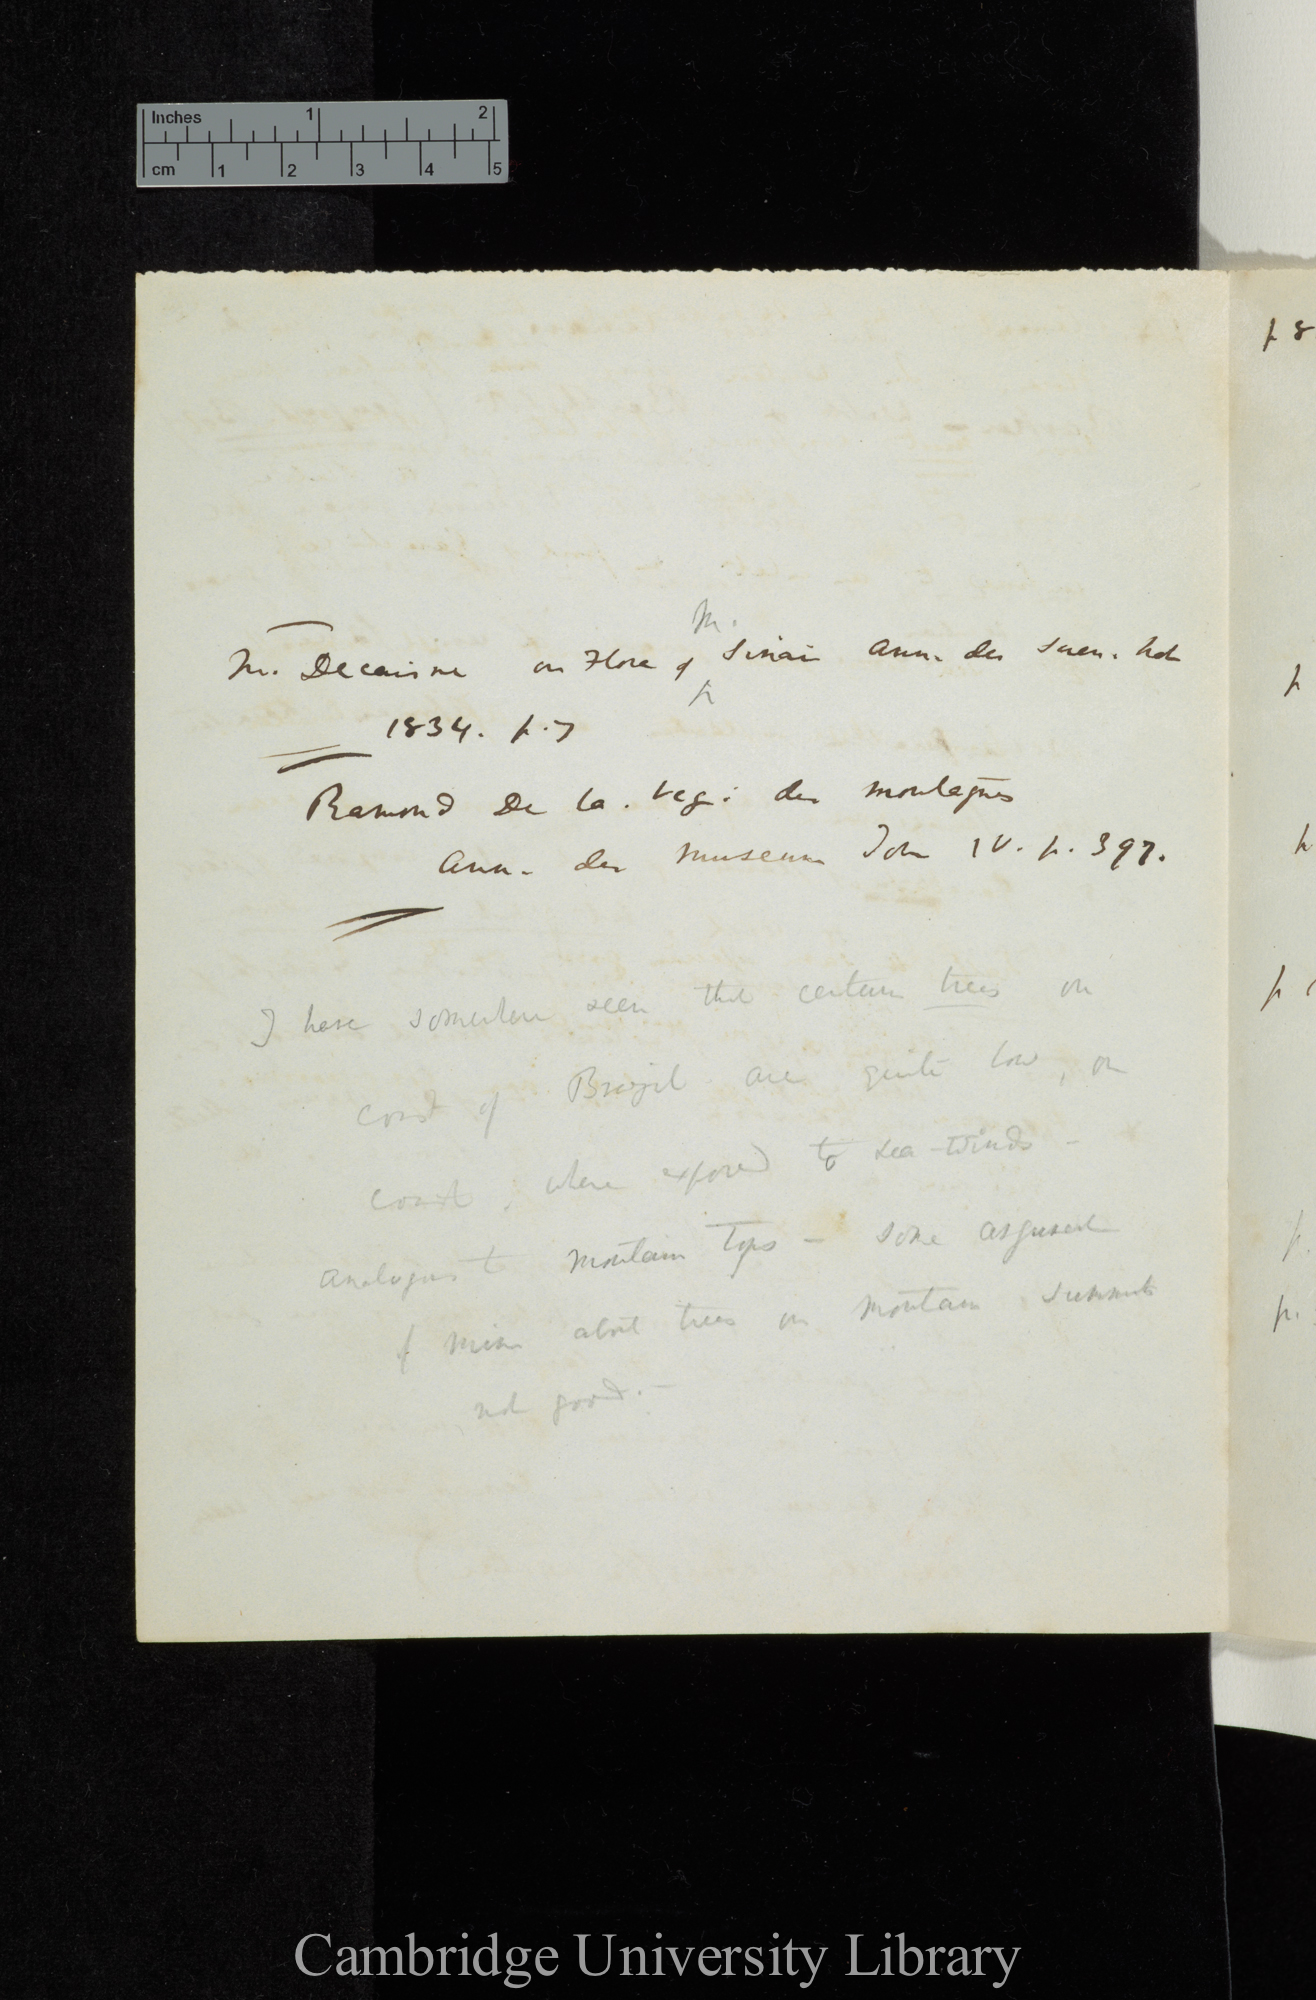 Inches 1 2
cm 1 2 3 4 5
p 8
M.
M. Decaisne on Flora of Sinai Ann. des Scien. Nat
p
1834. p. 7
Ramond De la. Veg: des montagnes
Ann. des Museum Tom IV. p. 397.
I have somewhere seen that certain trees on
coast of Brazil are quite low, on
coast, where exposed to sea-winds -
analogous to mountain tops - some argument
of mine about trees on mountain summits
not good. -
p
p
p.
p.
Cambridge University Library